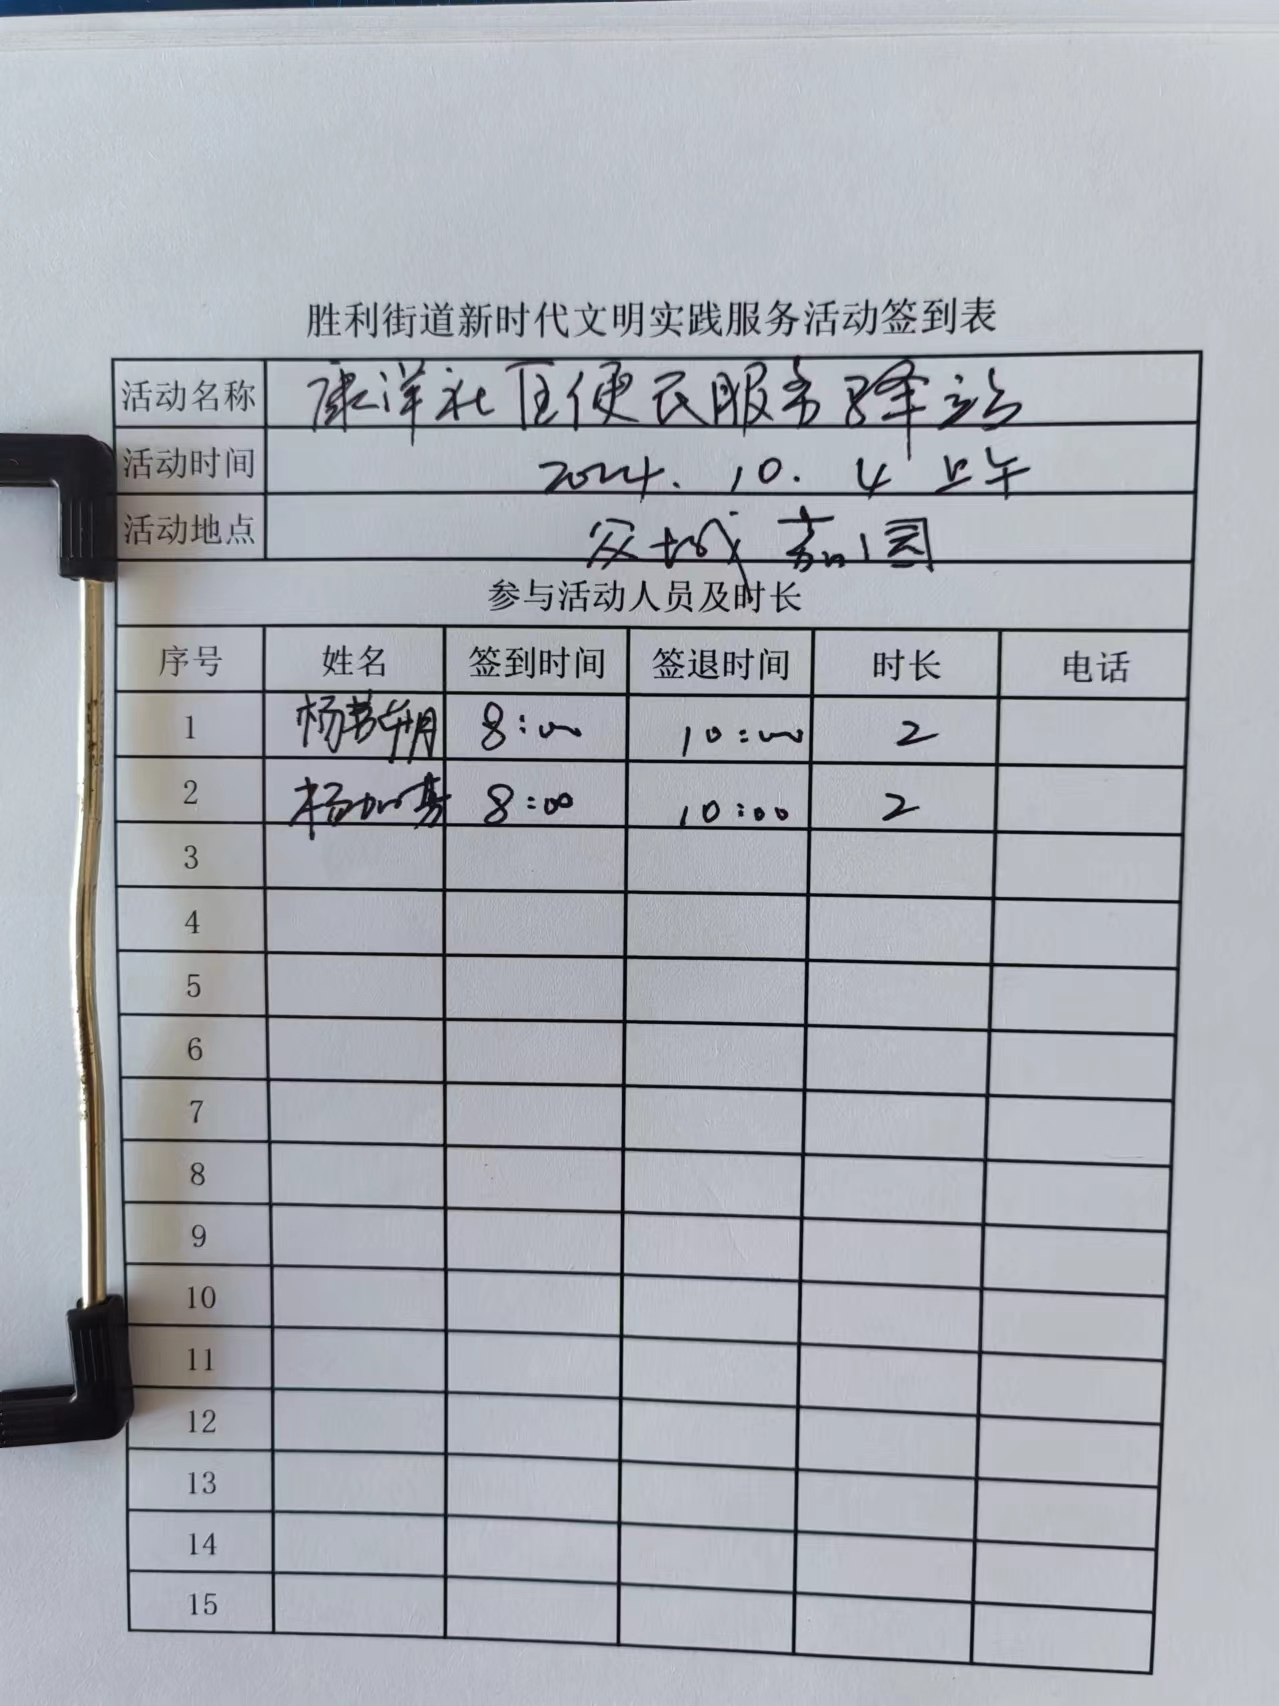 胜利街道新时代文明实践服务活动签到表
活动名称 康洋社区便民服务驿站
活动时间 2024.10.4 上午
活动地点 众城嘉园
参与活动人员及时长
序号 姓名 签到时间 签退时间 时长 电话
1 杨 8:00 10:00 2
2 杨 8:00 10:00 2
3
4
5
6
7
8
9
10
11
12
13
14
15